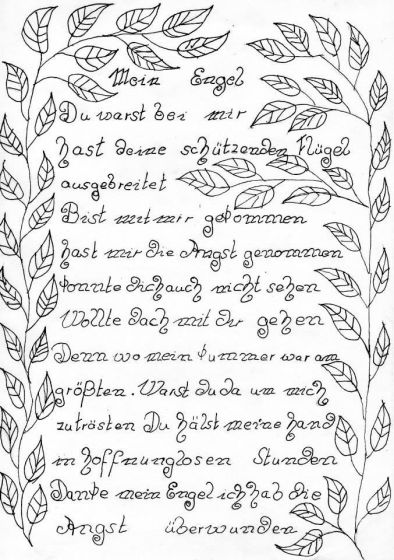 Mein Engel
Du warst bei mir
hast deine schützenden Flügel
ausgebreitet
Bist mit mir gekommen
hast mir die Angst genommen
konnte dich auch nicht sehen
Wollte doch mit dir gehen
Denn wo mein kummer war am
größten. Warst du da um mich
zutrösten Du hälst meine hand
in hoffnunglosen Stunden
Danke mein Engel ich hab die
Angst überwunden